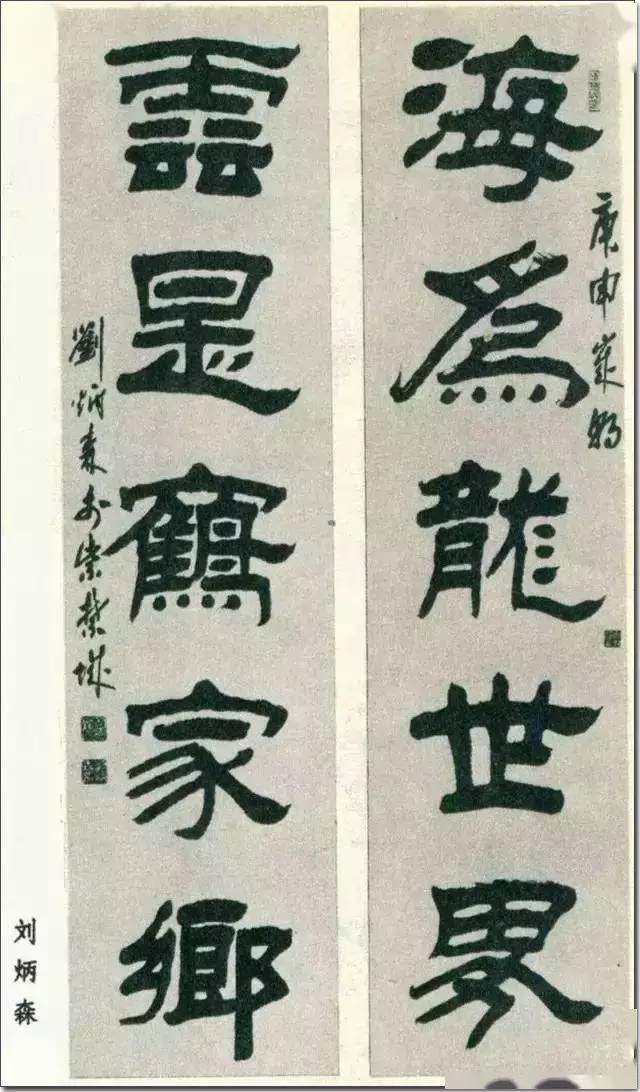 庚申歲
海爲龍世界
雲是鶴家鄉
劉炳森於紫禁城
刘炳森